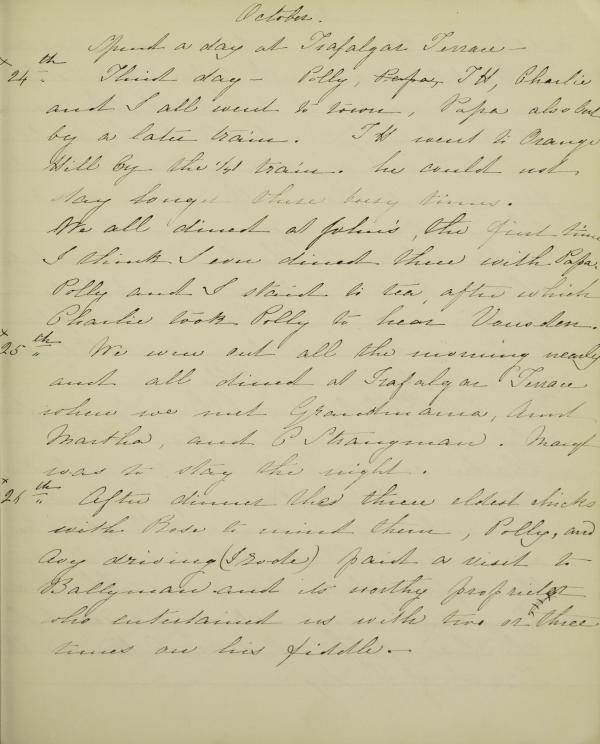 October.
Spent a day at Trafalgar Terrace –
24th Third day – Polly, Papa, TH, Charlie
and I all went to town, Papa also but
by a later train. TH went to Orange
Hill by the train. he could not
stay longer these busy times.
We all dined at John's, the first time
I think I ever dined there with Papa.
Polly and I staid to tea, after which
Charlie took Polly to hear Vousden.
25th We were out all the morning nearly
and all dined at Trafalgar Terrace
where we met Grandmama, Aunt
Martha, and C Strangman. Mary
was to stay the night.
26th After dinner the three eldest chicks
with Rose to mind them, Polly, and
Avy driving (I rode) paid a visit to
Ballyman and its worthy proprietor
who entertained us with two or three
times on his fiddle. –